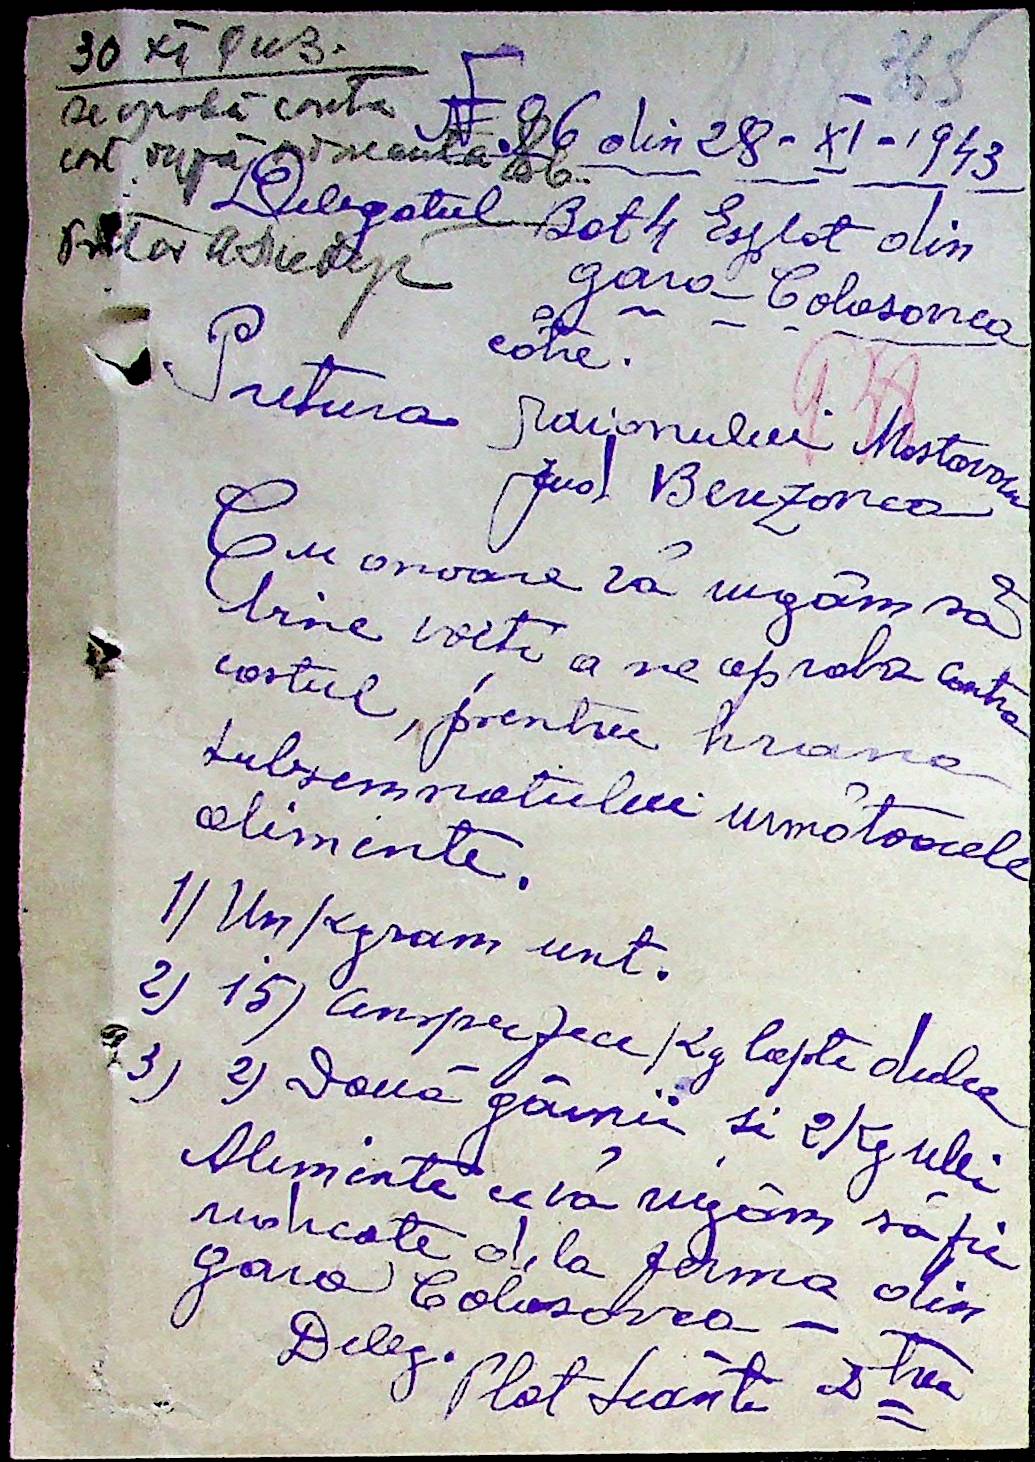 30 XI 943.
se aprobă contra
cost după
Pretor
365
N. 86 din 28 - XI - 1943
Delegatul Bat 4 Esplot din
gara Colosovca
cătrе.
Pretura raionului Mostovoi
Jud Berezovca
Cu onoare vă rugăm să
bine voiti a ne aproba contra
costul, pentru hrana
subsemnatului următoarele
alimente.
1) Un/Kgram unt.
2) 15) cinsprezece /Kg lapte dulce
3) 2) Două găinii si 2/Kg ulei
Alimente ce vă rugăm să fie
ridicate d, la ferma din
gara Colosovca -
Deleg.
Plot